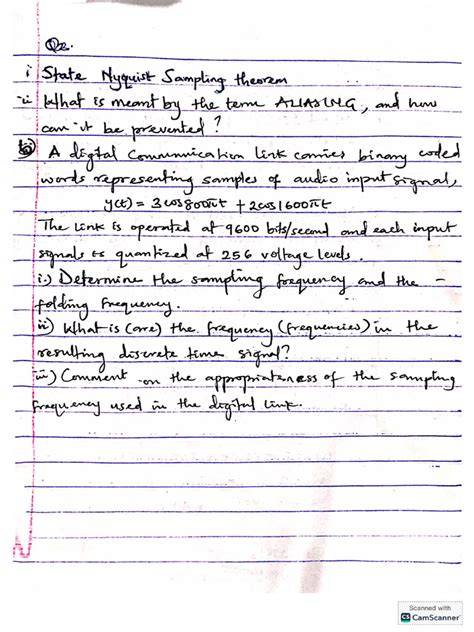 Q2.
i State Nyquist Sampling theorem
ii What is meant by the term ALIASING, and how
can it be prevented?
b) A digital communication link carries binary coded
words representing samples of audio input signal,
y(t) = 3cos800πt + 2cos1600πt
The link is operated at 9600 bits/second and each input
signals is quantized at 256 voltage levels.
i.) Determine the sampling frequency and the -
folding frequency.
ii) What is (are) the frequency (frequencies) in the
resulting discrete time signal?
iii) Comment on the appropriateness of the sampling
frequency used in the digital link.
Scanned with
CS CamScanner